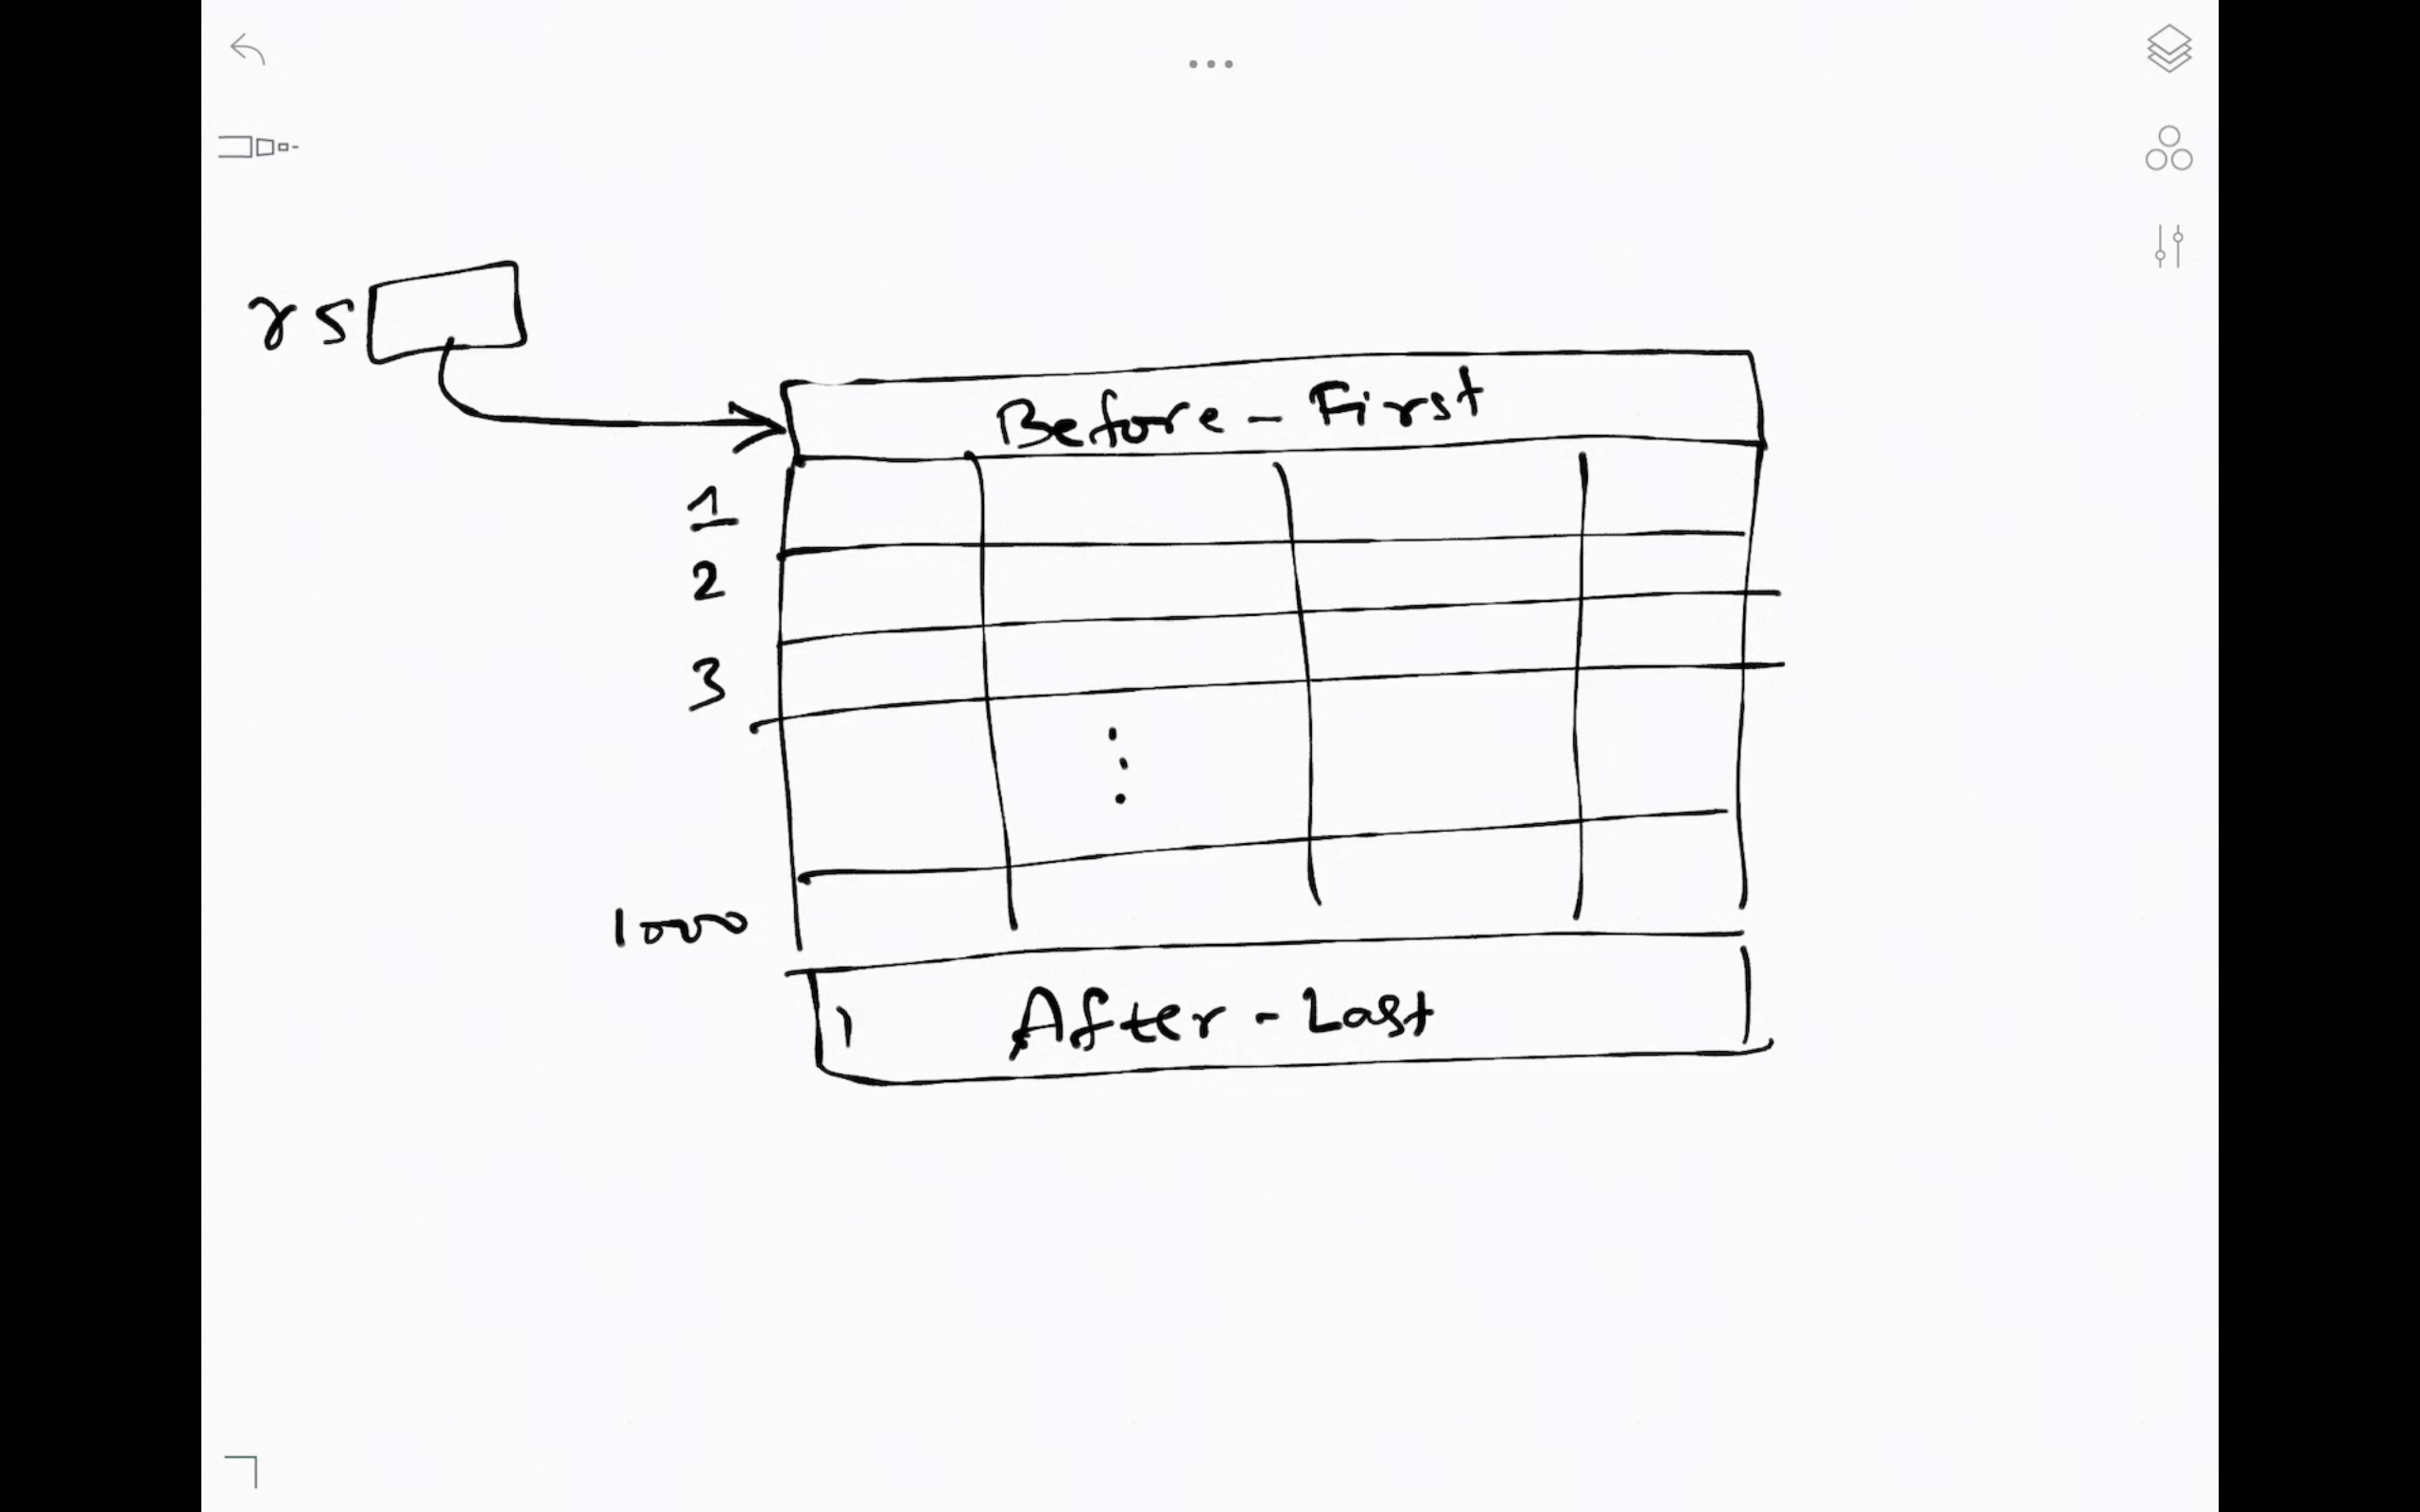 rs
Before - First
1
2
3
1000
After - Last